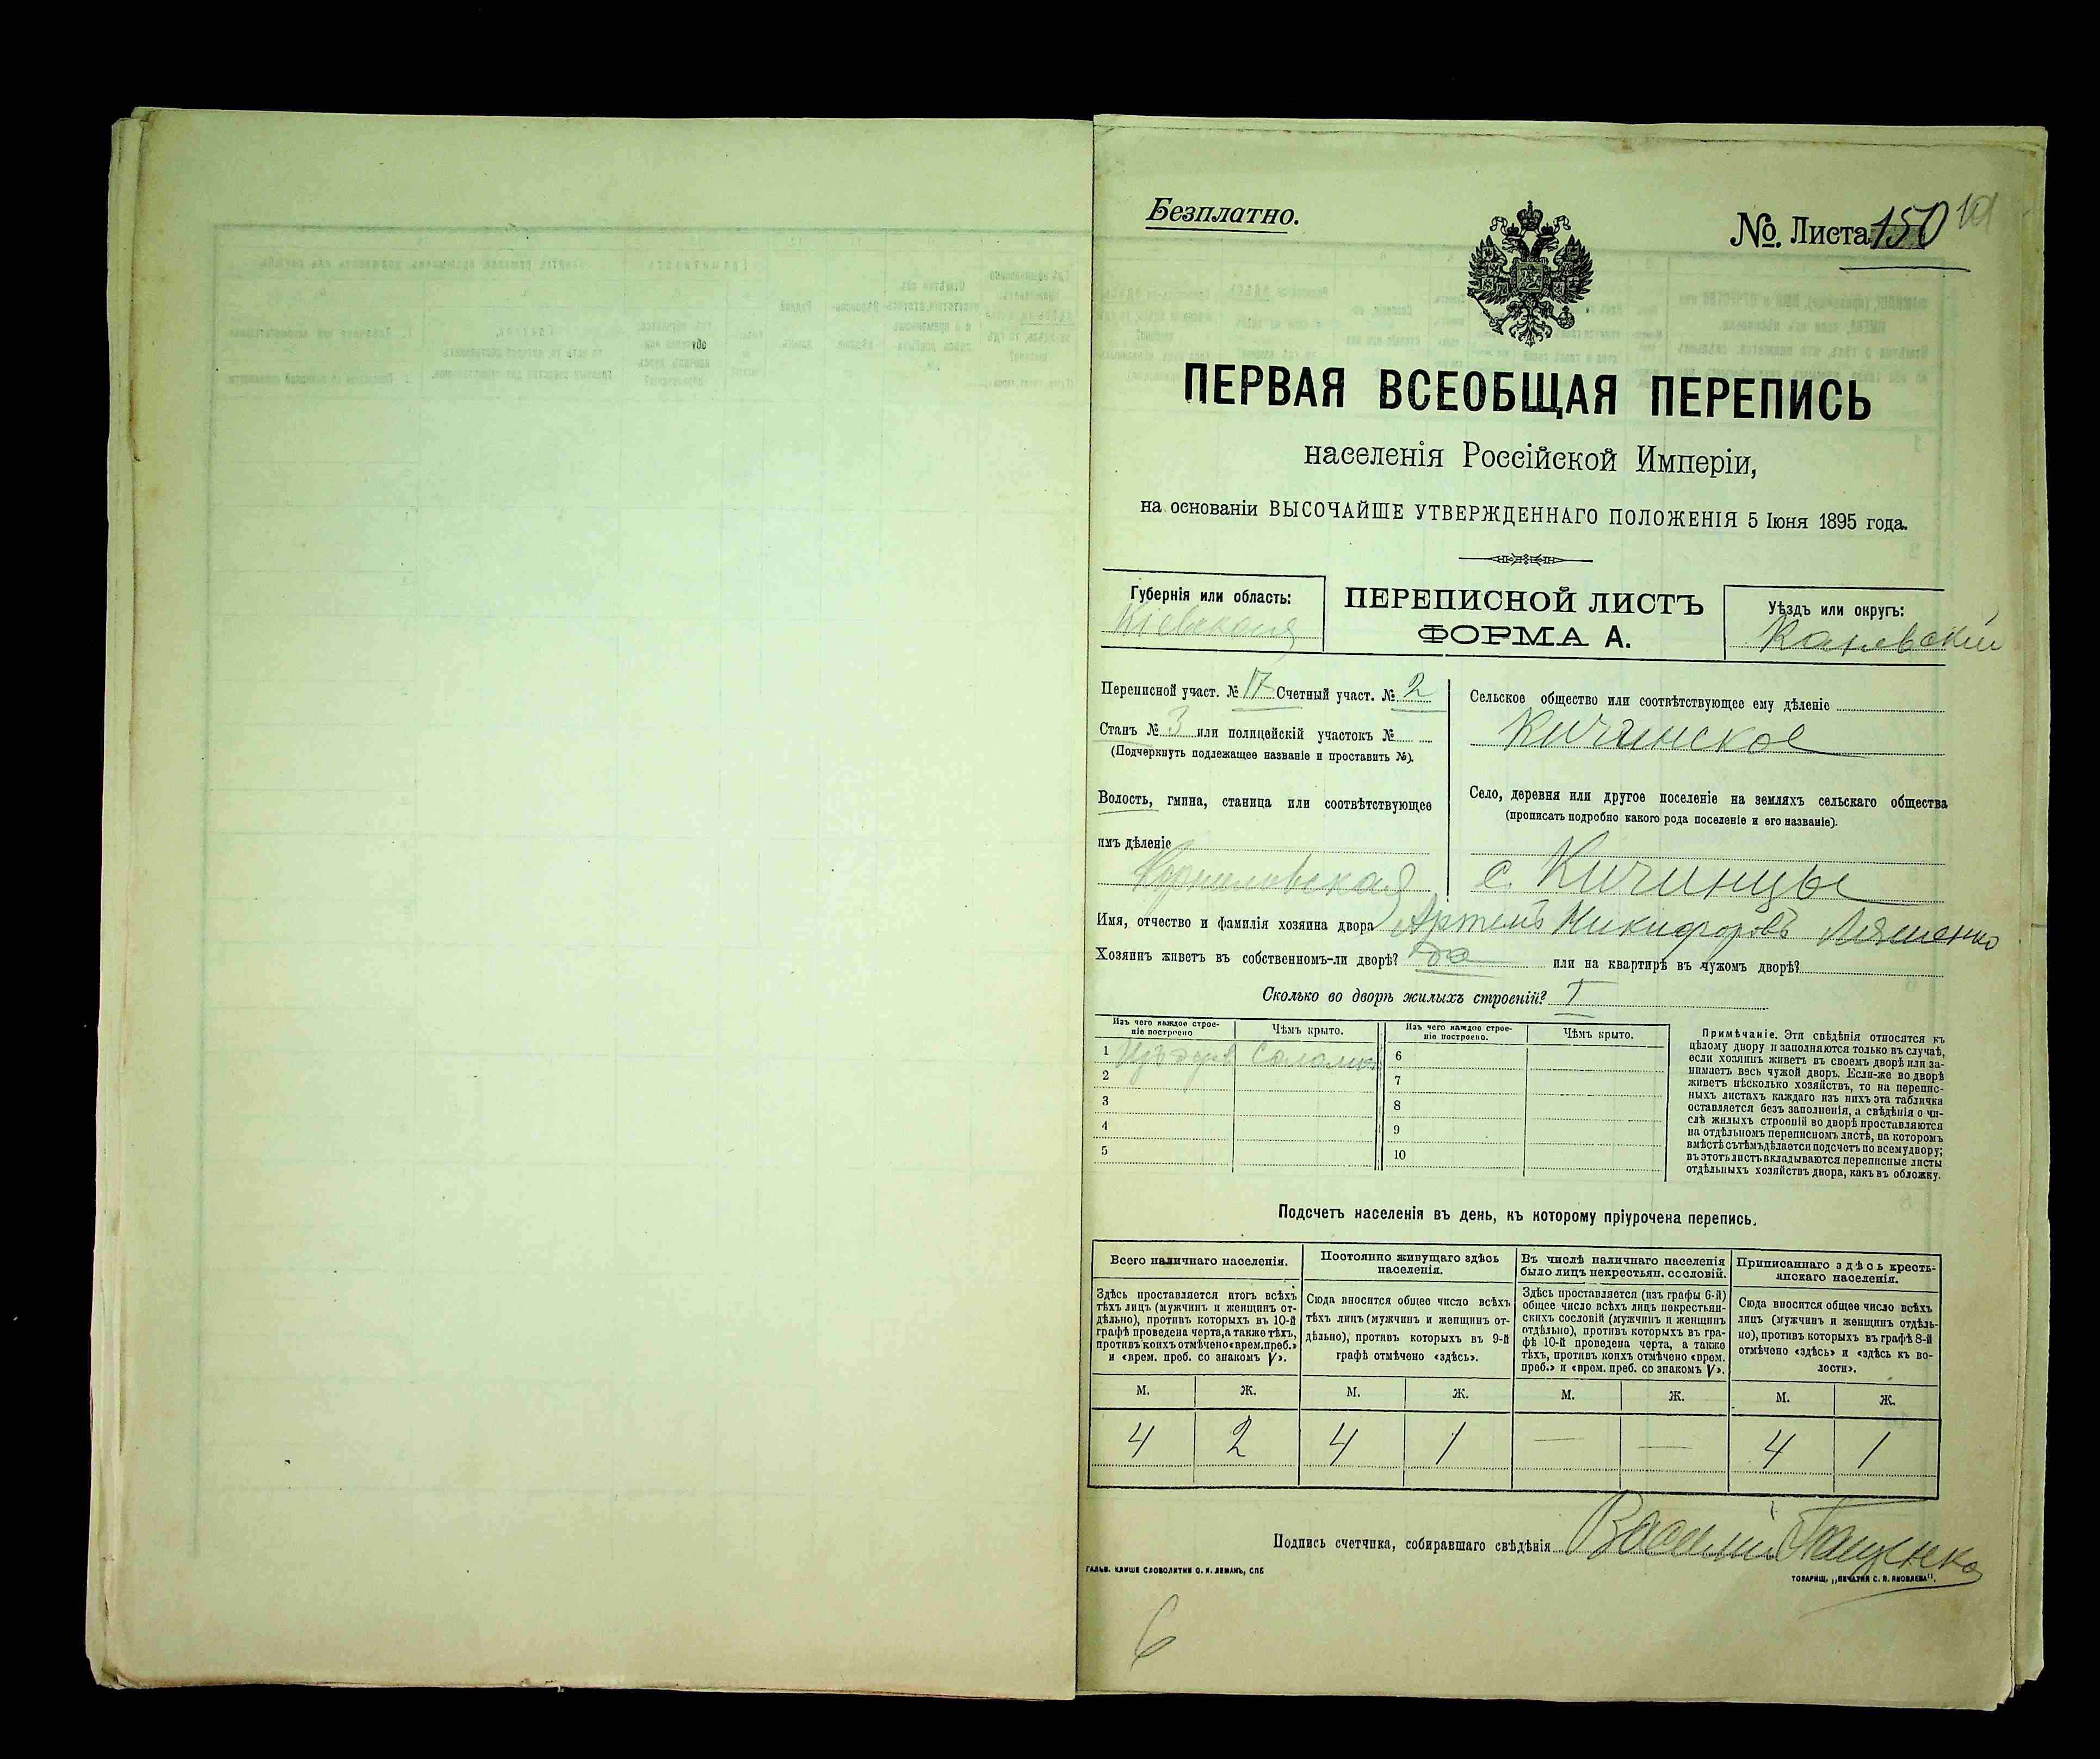 Безплатно.
№. Листа 150
ПЕРВАЯ ВСЕОБЩАЯ ПЕРЕПИСЬ
населенія Россійской Имперіи,
на основаніи ВЫСОЧАЙШЕ УТВЕРЖДЕННАГО ПОЛОЖЕНІЯ 5 Іюня 1895 года.
Губернія или область:
Кіевская
ПЕРЕПИСНОЙ ЛИСТЪ
ФОРМА А.
Уѣздъ или округъ:
Каневскій
Переписной участ. № 17 Счетный участ. № 2
Станъ № 3 или полицейскій участокъ №
(Подчеркнуть подлежащее названіе и проставить №).
Волость, гмина, станица или соотвѣтствующее
имъ дѣленіе
Сельское общество или соотвѣтствующее ему дѣленіе
Кичинское
Село, деревня или другое поселеніе на земляхъ сельскаго общества
(прописать подробно какого рода поселеніе и его названіе).
с. Кичинцы
Имя, отчество и фамилія хозяина двора Артемъ Никифоровъ Ляшенко
Хозяинъ живетъ въ собственномъ-ли дворѣ? Да или на квартирѣ въ чужомъ дворѣ?
Сколько во дворѣ жилыхъ строеній? 1
Изъ чего каждое строе-
ніе построено
Чѣмъ крыто.
Изъ чего каждое строе-
ніе построено.
Чѣмъ крыто.
1 Изъ дерев Соломы
2
3
4
5
6
7
8
9
10
Примѣчаніе. Эти свѣдѣнія относятся къ
цѣлому двору и заполняются только въ случаѣ,
если хозяинъ живетъ въ своемъ дворѣ или за-
нимаетъ весь чужой дворъ. Если-же во дворѣ
живетъ нѣсколько хозяйствъ, то на перепис-
ныхъ листахъ каждаго изъ нихъ эта табличка
оставляется безъ заполненія, а свѣдѣнія о чи-
слѣ жилыхъ строеній во дворѣ проставляются
на отдѣльномъ переписномъ листѣ, на которомъ
вмѣстѣ съ тѣмъ дѣлается подсчетъ по всему двору;
въ этотъ листъ вкладываются переписные листы
отдѣльныхъ хозяйствъ двора, какъ въ обложку.
Подсчетъ населенія въ день, къ которому пріурочена перепись.
Всего наличнаго населенія.
Здѣсь проставляется итогъ всѣхъ
тѣхъ лицъ (мужчинъ и женщинъ от-
дѣльно), противъ которыхъ въ 10-й
графѣ проведена черта, а также тѣхъ,
противъ коихъ отмѣчено «врем. преб.»
и «врем. преб. со знакомъ V».
Постоянно живущаго здѣсь
населенія.
Сюда вносится общее число всѣхъ
тѣхъ лицъ (мужчинъ и женщинъ от-
дѣльно), противъ которыхъ въ 9-й
графѣ отмѣчено «здѣсь».
Въ числѣ наличнаго населенія
было лицъ некрестьян. сословій.
Здѣсь проставляется (изъ графы 6-й)
общее число всѣхъ лицъ некрестьян-
скихъ сословій (мужчинъ и женщинъ
отдѣльно), противъ которыхъ въ гра-
фѣ 10-й проведена черта, а также
тѣхъ, противъ коихъ отмѣчено «врем.
преб.» и «врем. преб. со знакомъ V».
Приписаннаго здѣсь кресть-
янскаго населенія.
Сюда вносится общее число всѣхъ
лицъ (мужчинъ и женщинъ отдѣль-
но), противъ которыхъ въ графѣ 8-й
отмѣчено «здѣсь» и «здѣсь къ во-
лости».
М. Ж. М. Ж. М. Ж. М. Ж.
4 2 4 1 — — 4 1
Подпись счетчика, собиравшаго свѣдѣнія Василій
ГАЛЬВ. КЛИШЕ СЛОВОЛИТНИ О. И. ЛЕМАНЪ, СПБ
ТОВАРИЩ. „ПЕЧАТНЯ С. П. ЯКОВЛЕВА".
6